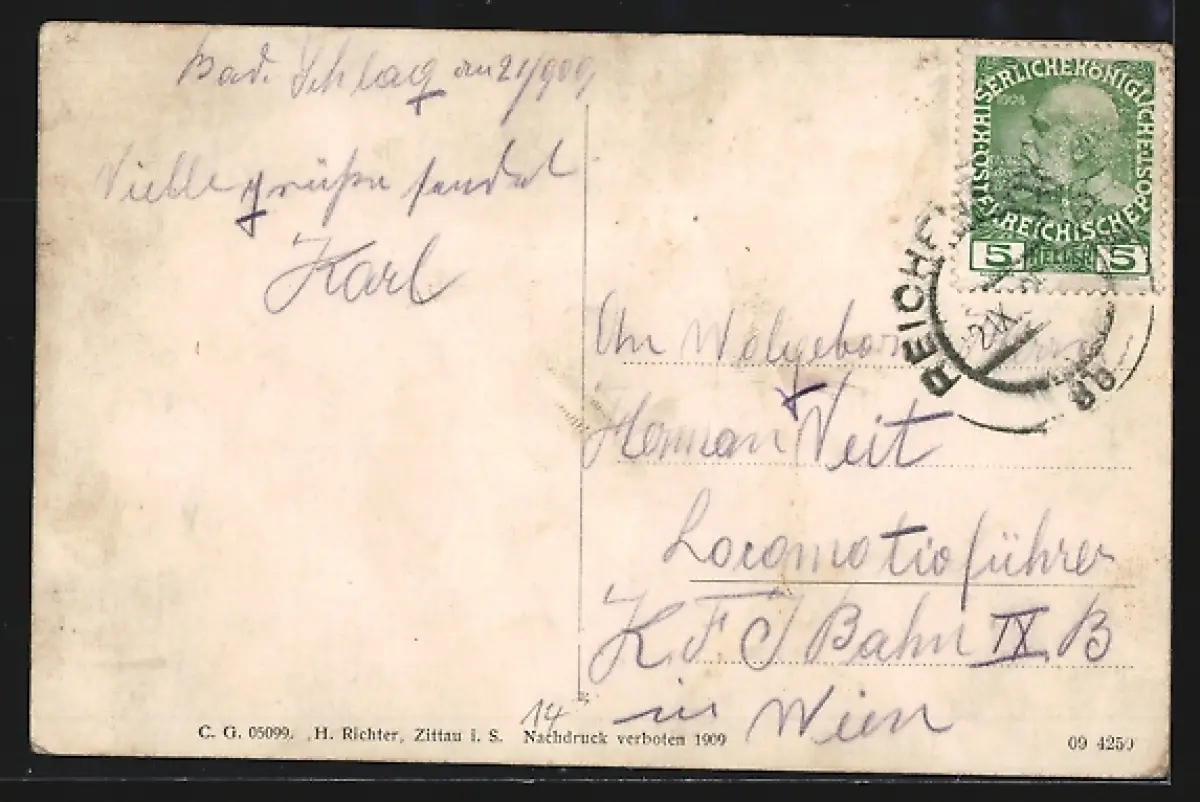 Bad. Schlag am 2/1909
Vielle grüße sendet
Karl
KAISERLICHE KÖNIGLICHE ÖSTERREICHISCHE POST
1908
5 HELLER 5
REICHE
2 IX
8b
An Wolgeborn Herrn
Herman Veit
Locomotivführer
K. F. J Bahn IX B
in Wien
14
C. G. 05099. H. Richter, Zittau i. S. Nachdruck verboten 1909
09 4250